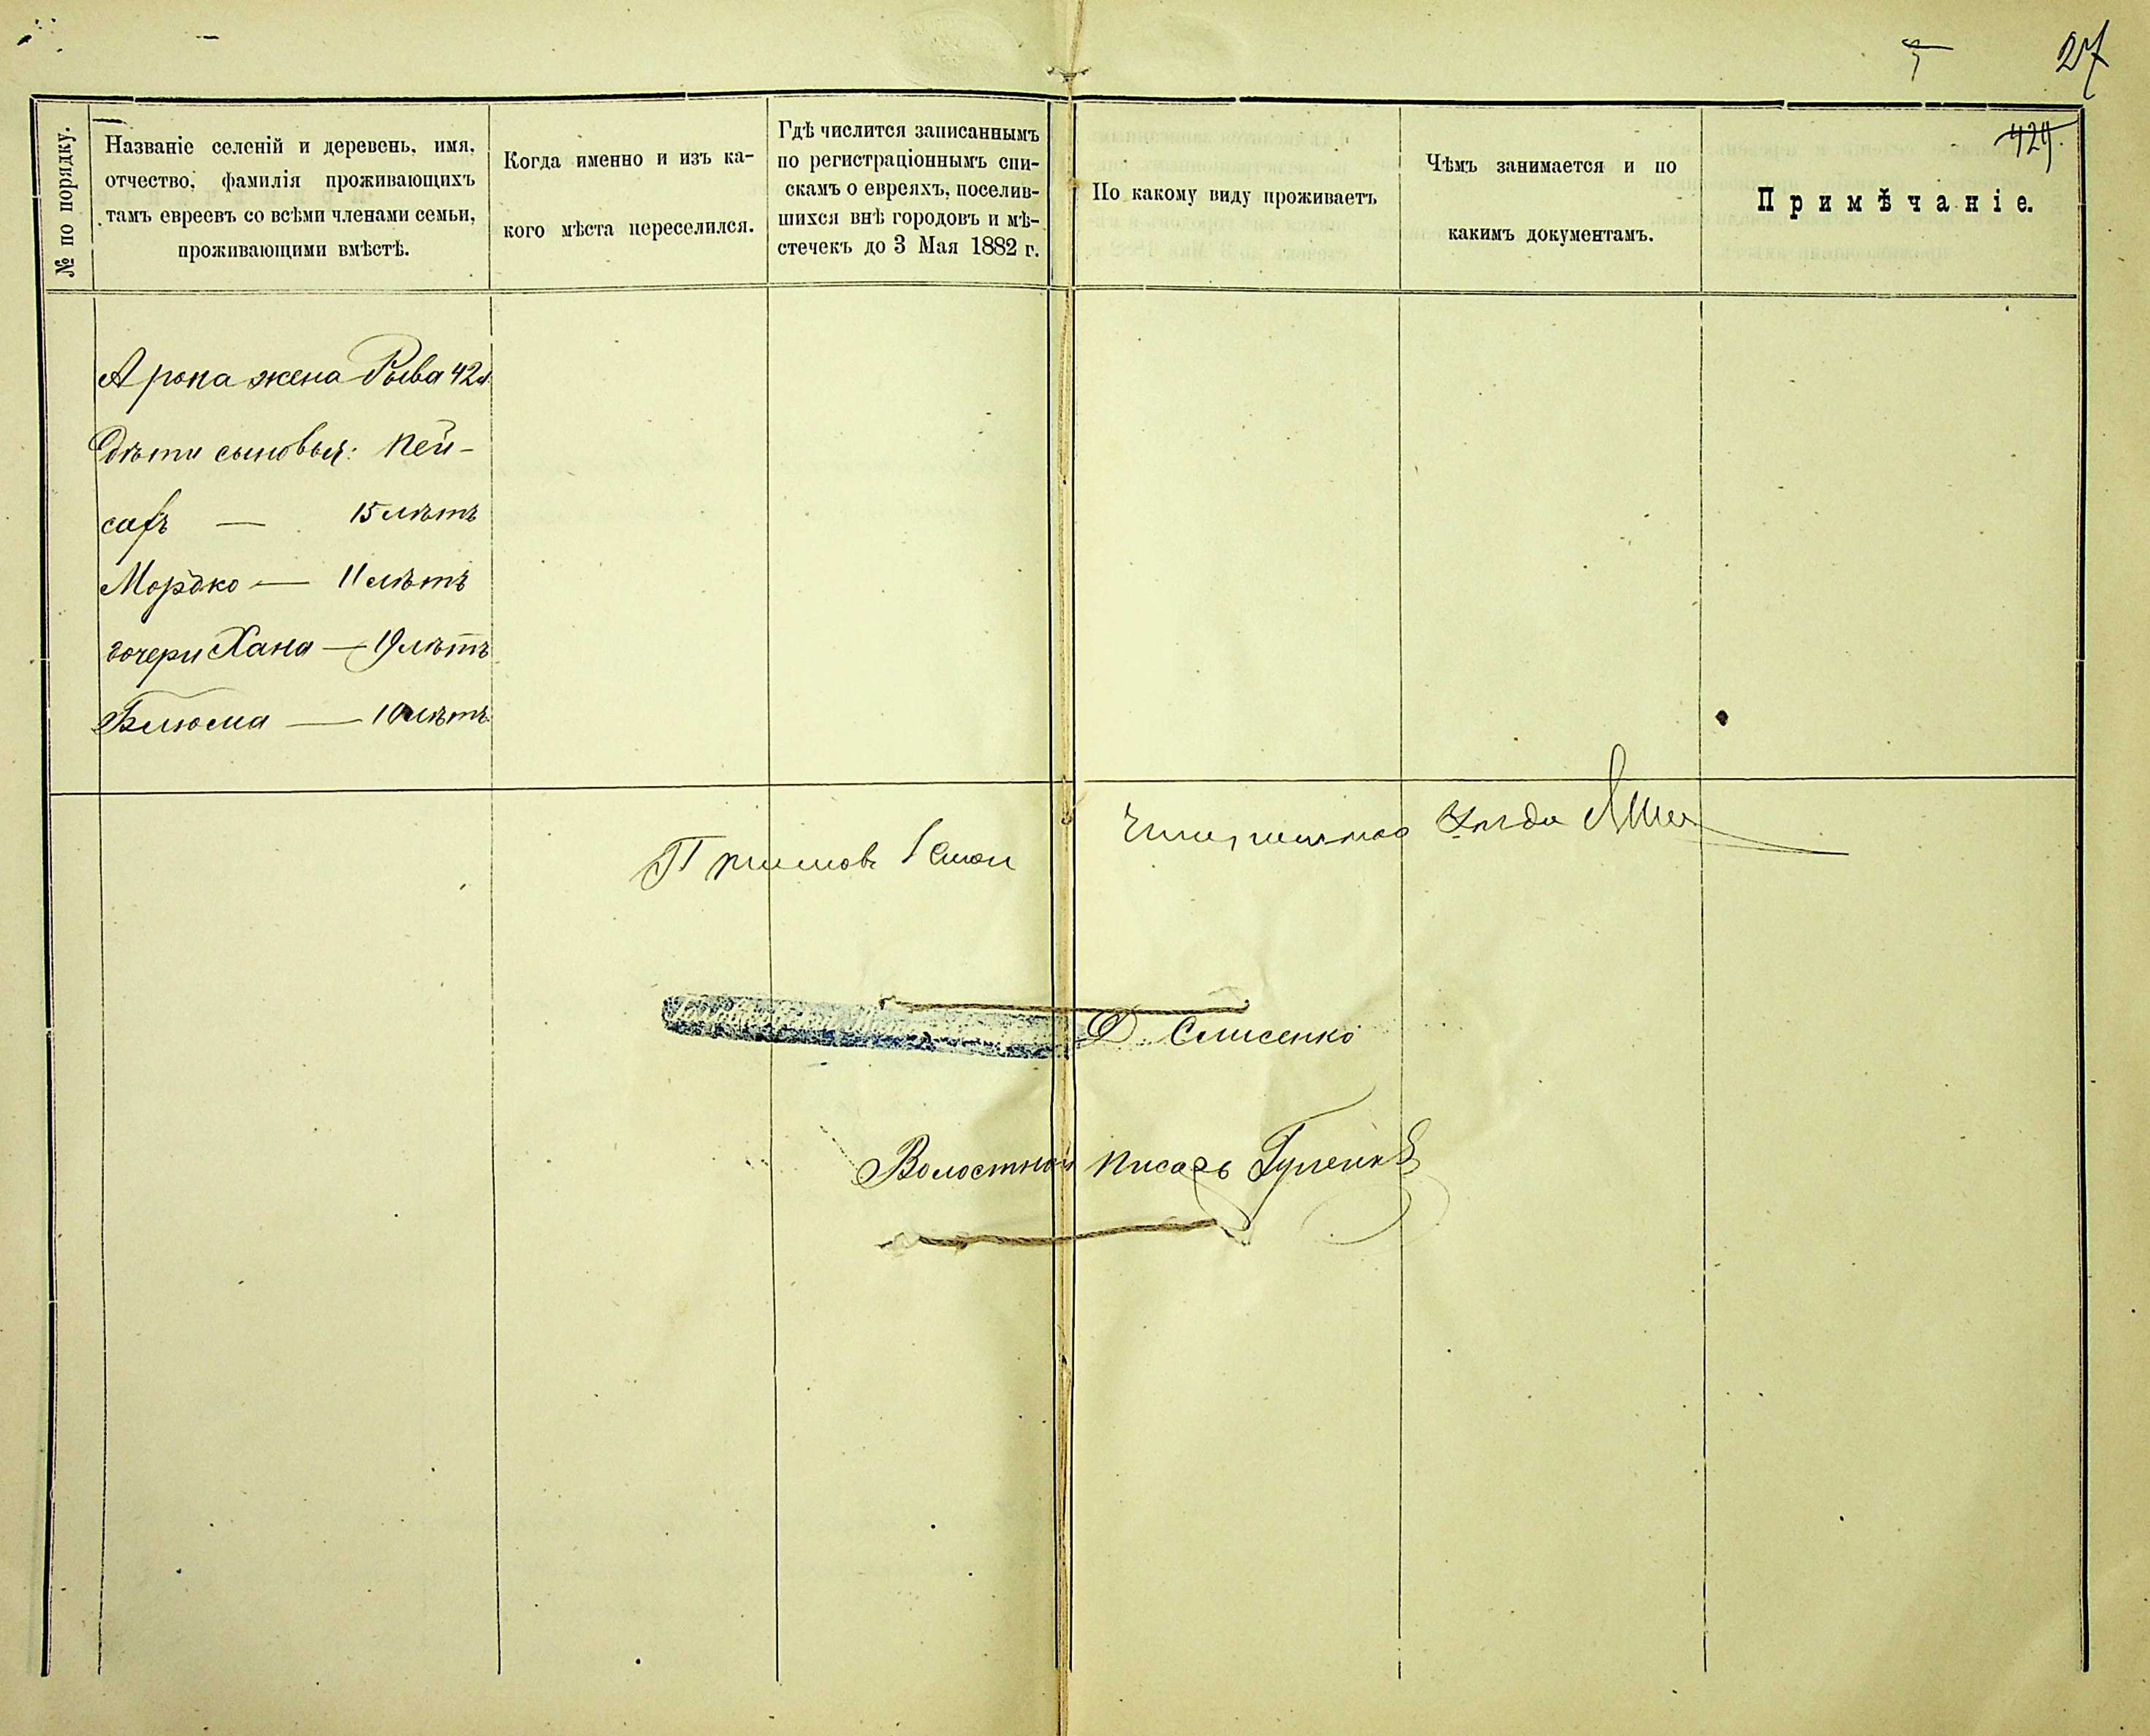 27
429.
№ по порядку.
Названіе селеній и деревень, имя,
отчество, фамилія проживающихъ
тамъ евреевъ со всѣми членами семьи,
проживающими вмѣстѣ.
Когда именно и изъ ка-
кого мѣста переселился.
Гдѣ числится записаннымъ
по регистраціоннымъ спи-
скамъ о евреяхъ, поселив-
шихся внѣ городовъ и мѣ-
стечекъ до 3 Мая 1882 г.
По какому виду проживаетъ
Чѣмъ занимается и по
какимъ документамъ.
Примѣчаніе.
Арона жена Рыва 42 л
Дѣти сыновья: Пей-
сахъ — 15 лѣтъ
Мордко — 11 лѣтъ
дочери Хана — 19 лѣтъ
Блюма — 10 лѣтъ
Д. Елисенко
Волостной писарь